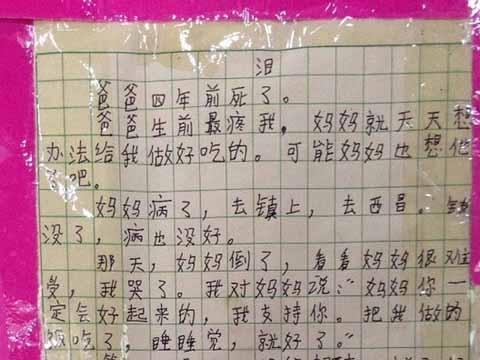 泪
爸爸四年前死了。
爸爸生前最疼我，妈妈就天天想
办法给我做好吃的。可能妈妈也想他
了吧。
妈妈病了，去镇上，去西昌。钱
没了，病也没好。
那天，妈妈倒了，看看妈妈很难
受，我哭了。我对妈妈说：“妈妈你一
定会好起来的，我支持你。把我做的
饭吃了，睡睡觉，就好了。”